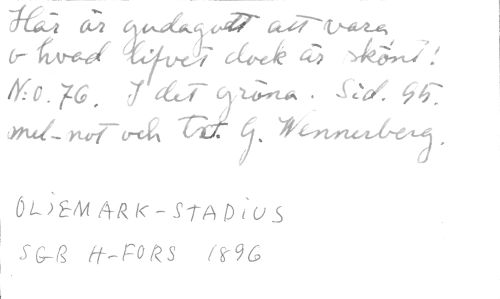 Här är gudagott att vara
o hvad lifvet dock är skönt!
N:o. 76. I det gröna. Sid. 95.
mel-not och txt. G. Wennerberg.
OLJEMARK-STADIUS
SGB H-FORS 1896